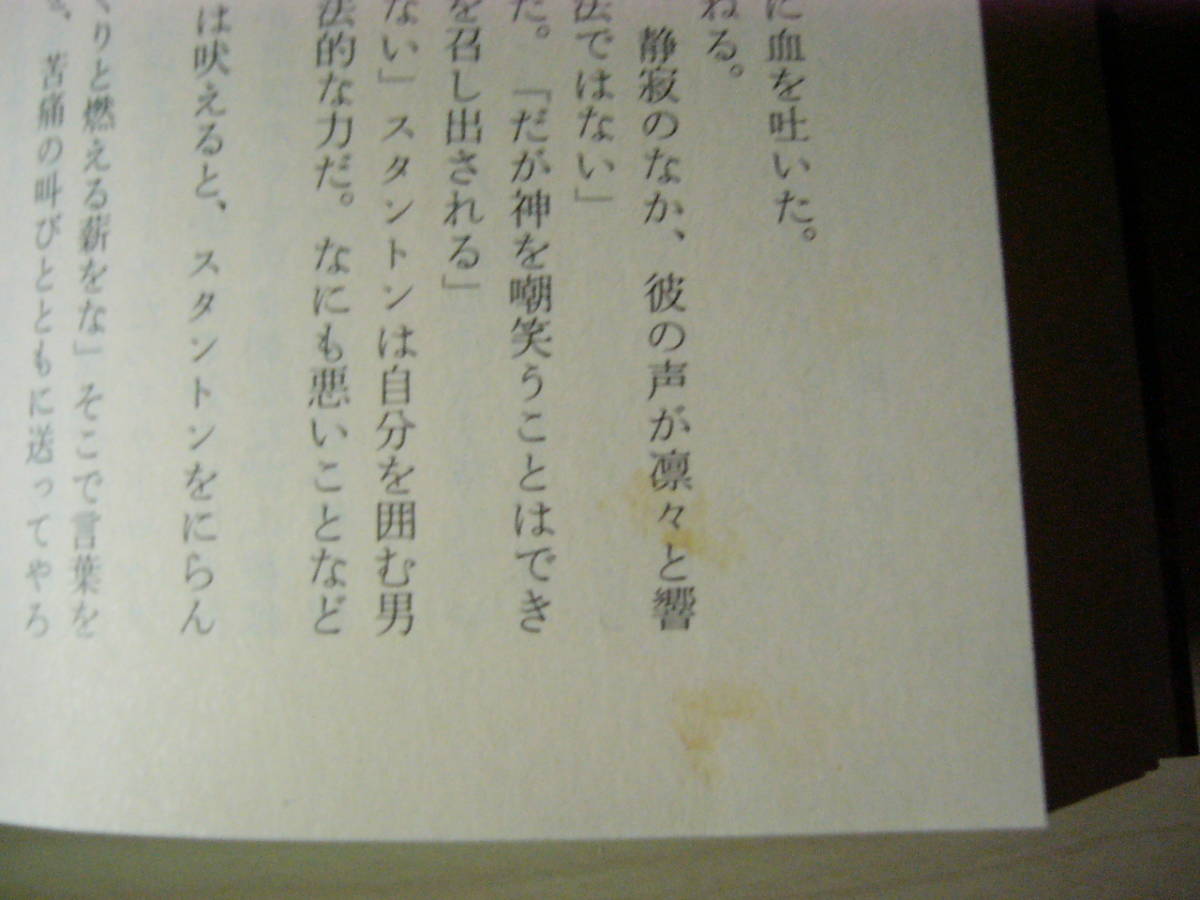 に血を吐いた。
ねる。
静寂のなか、彼の声が凛々と響
法ではない」
た。「だが神を嘲笑うことはでき
を召し出される」
ない」スタントンは自分を囲む男
法的な力だ。なにも悪いことなど
は吠えると、スタントンをにらん
くりと燃える薪をな」そこで言葉を
、苦痛の叫びとともに送ってやろ